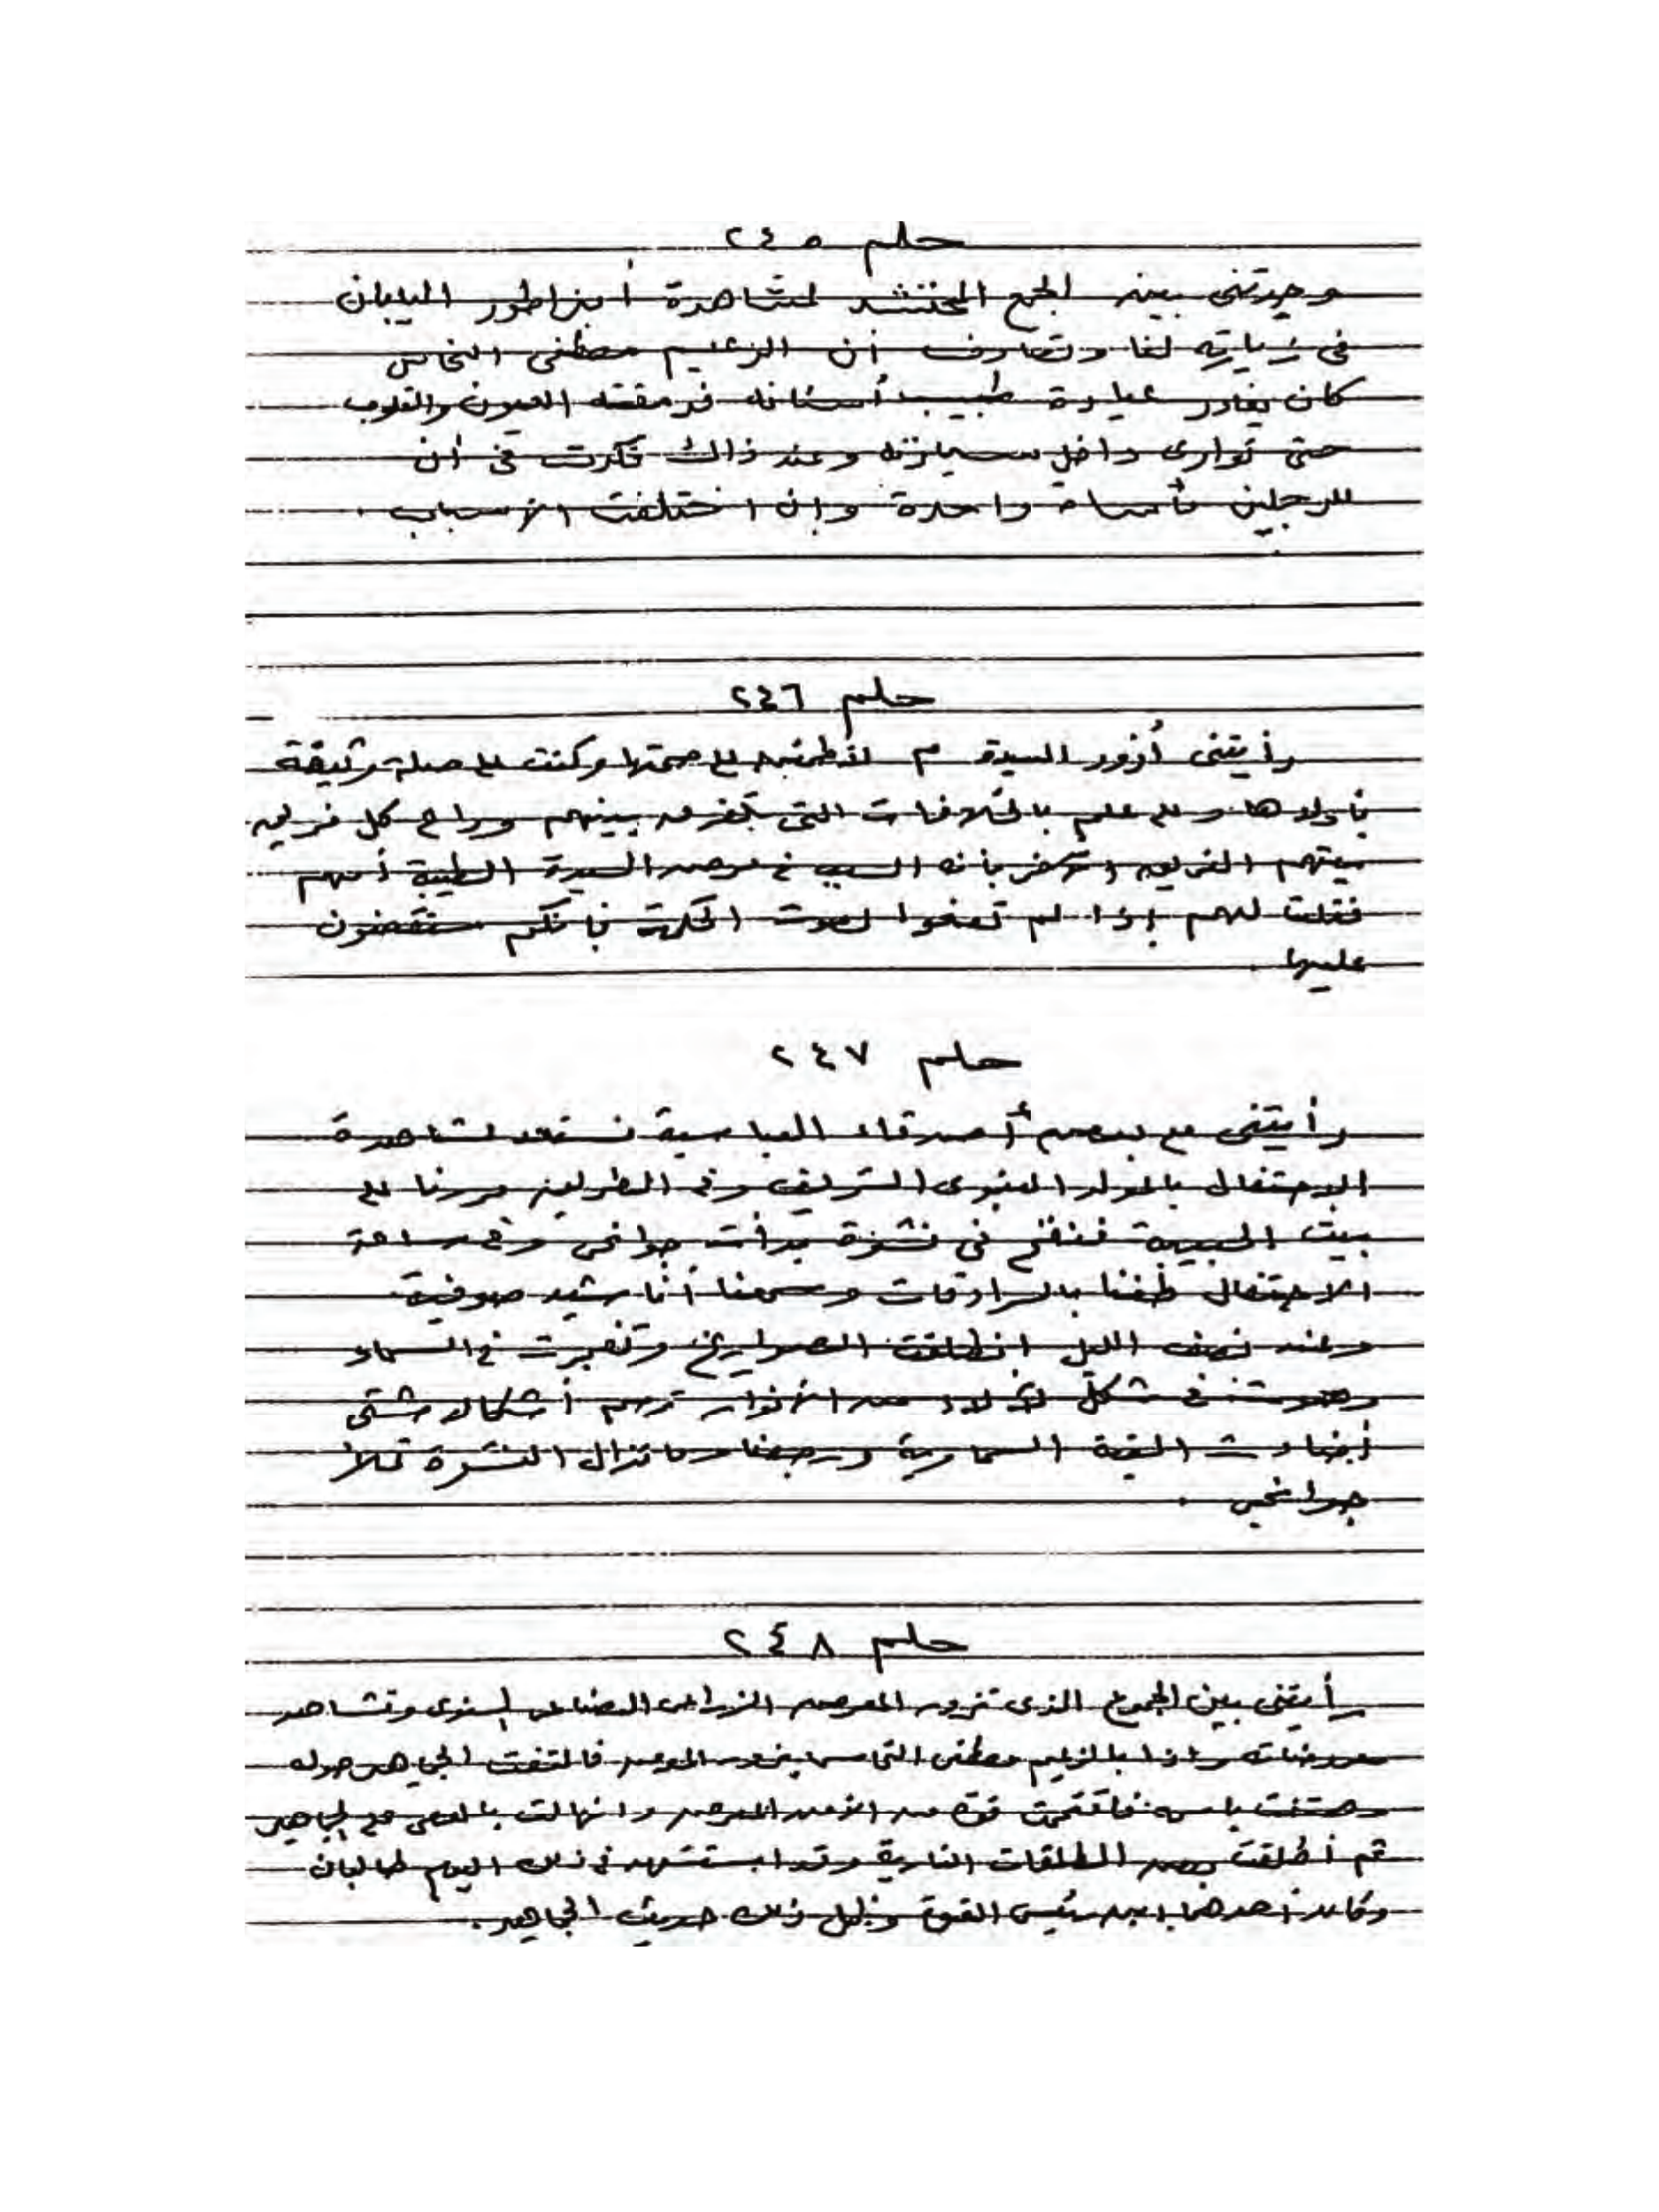 حلم ٢٤٥
وجدتنى بين الجمع المحتشد لمشاهدة أمبراطور اليابان
فى زيارته لنا وتصادف أن الزعيم مصطفى النحاس
كان يغادر عيادة طبيب أسنانه فرمقته العيون والقلوب
حتى توارى داخل سيارته وعند ذاك فكرت فى أن
للرجلين مأساة واحدة وإن اختلفت الأسباب .
حلم ٢٤٦
رأيتنى أزور السيدة م لأطمئن على صحتها وكنت على صلة وثيقة
بأولادها وعلى علم بالخلافات التى تفرق بينهم وراح كل فريق
يتهم الفريق الآخر بأنه السبب فى مرض السيدة الطيبة أمهم
فقلت لهم إذا لم تصغوا لصوت الحكمة فإنكم ستقضون
عليها .
حلم ٢٤٧
رأيتنى مع بعض أصدقاء العباسية نستعد لمشاهدة
الاحتفال بالمولد النبوى الشريف وفى الطريق مررنا على
بيت الحبيبة فى نشوة جوانحى وفى ساحة
الاحتفال طفنا بالسرادقات وسمعنا أناشيد صوفية
وعند نصف الليل انطلقت الصواريخ وتفجرت فى السماء
وهوت فى شكل لآلاء من الأنوار ترسم أشكالا شتى
أضاءت القبة السماوية ورجعنا وما تزال النشوة تملأ
جوانحى .
حلم ٢٤٨
رأيتنى بين الجموع الذى تزور المعرض الزراعى الصناعى السنوى وتشاهد
معروضاته وإذا بالزعيم مصطفى النحاس يزور المعرض فالتفت الجماهير حوله
وهتفت باسمه فاقتحمت قوة من الأمن المعرض وانهالت بالعصى على الجماهير
ثم أطلقت بعض الطلقات النارية وقد استشهد فى ذلك اليوم طالبان
وكان أحدهما ابن رئيس القوة وظل ذلك حديث الجماهير.